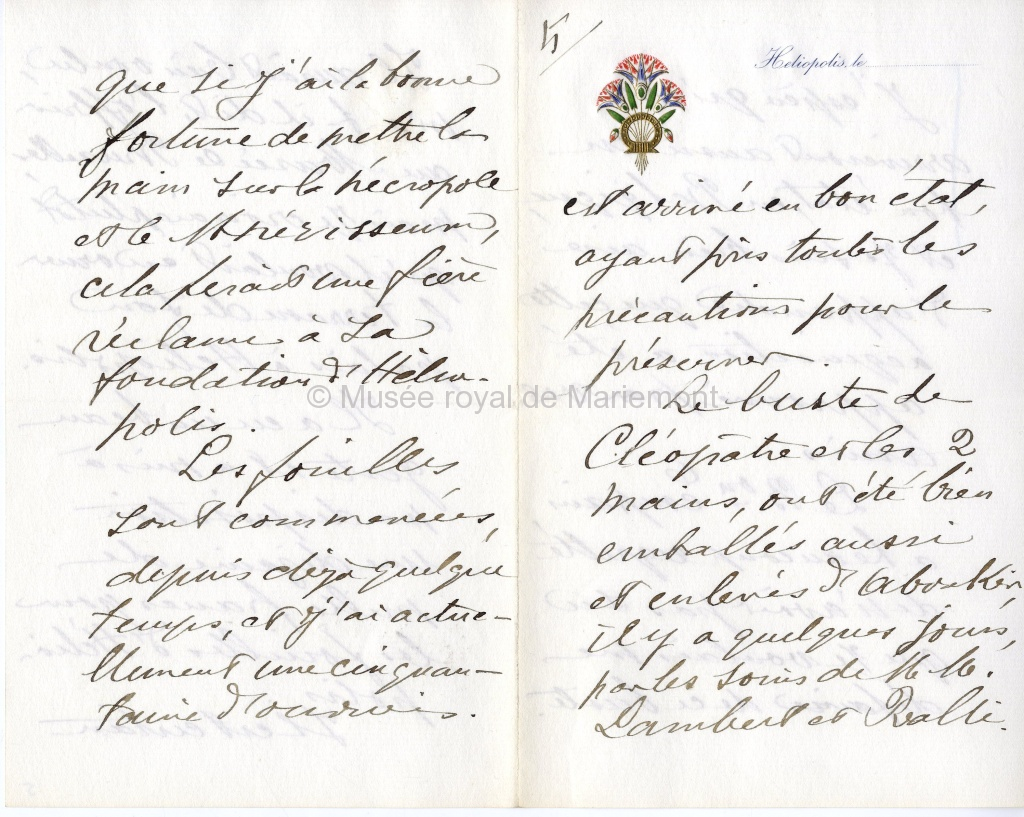 que si j'ai la bonne
fortune de mettre la
main sur la nécropole
et le Mnévisseum,
cela ferait une fière
réclame à la
fondation d'Hélio-
polis.
Les fouilles
sont commencées,
depuis déjà quelque
temps, et j'ai actue-
llement une cinquan-
taine d'ouvriers.
5
Heliopolis, le
est arrivé en bon état,
ayant pris toutes les
précautions pour le
préserver.
Le buste de
Cléopâtre et les 2
mains, ont été bien
emballés aussi
et enlevés d'Aboukir,
il y a quelques jours,
par les soins de M.M.
Lambert et Ralli.
© Musée royal de Mariemont
5